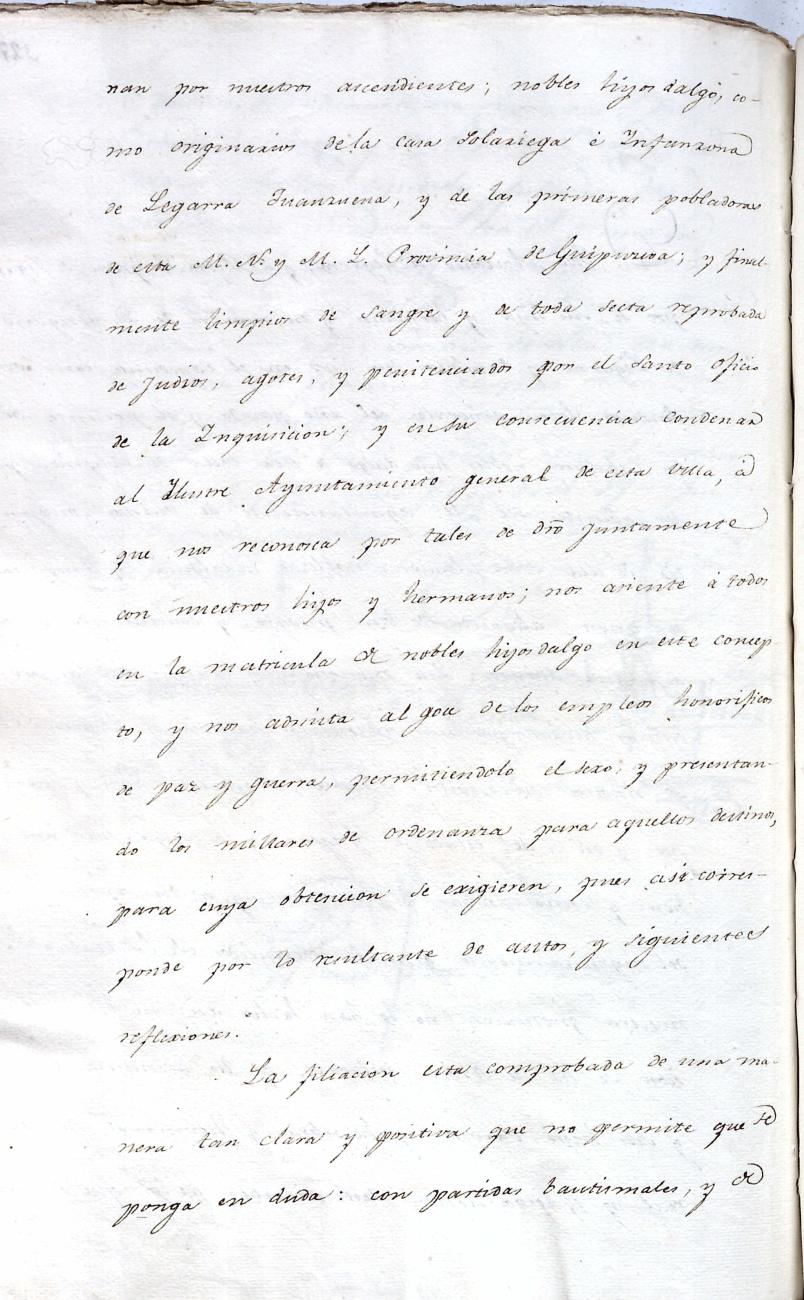 nan por nuestros ascendientes; nobles hijos dalgo, co-
mo originarios de la casa Solariega è Infanzona
de Legarra Juanzuena, y de las primeras pobladoras
de esta M. N. y M. L. Provincia de Guipuzcoa; y final-
mente limpios de sangre y de toda secta reprobada
de Judios, agotes, y penitenciados por el santo oficio
de la Inquisicion; y en su consecuencia condenar
al Ilustre Ayuntamiento general de esta villa, â
que nos reconosca por tales de dro Juntamente
con nuestros hijos y hermanos; nos asiente â todos
en la matricula de nobles hijos dalgo en este concep-
to, y nos admita al goce de los empleos honorificos
de paz y guerra, permitiendolo el sexo, y presentan-
do los millares de ordenanza para aquellos destinos,
para cuya obtencion se exigieren, pues asi corres-
ponde por lo resultante de autos, y siguientes
reflexiones.
La filiacion esta comprobada de una ma-
nera tan clara y positiva que no permite que se
ponga en duda: con partidas bautismales, y de